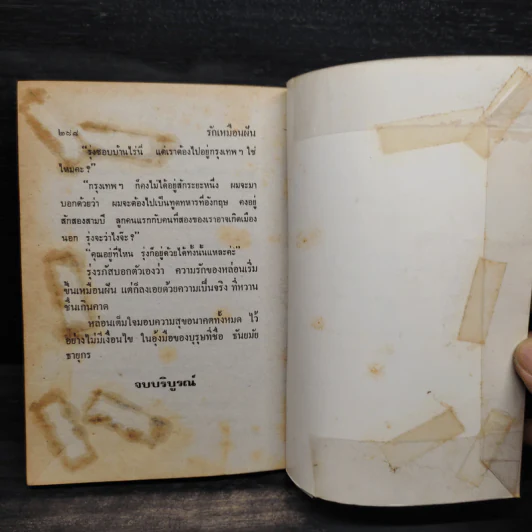 ๒๗๘ รักเหมือนฝัน
"รุ่งชอบบ้านไร่นี้ แต่เราต้องไปอยู่กรุงเทพฯ ใช่
ไหมคะ?"
"กรุงเทพฯ ก็คงไม่ได้อยู่สักระยะหนึ่ง ผมจะมา
บอกด้วยว่า ผมจะต้องไปเป็นทูตทหารที่อังกฤษ คงอยู่
สักสองสามปี ลูกคนแรกกับคนที่สองของเราอาจเกิดเมือง
นอก รุ่งจะว่าไงจ๊ะ?"
"คุณอยู่ที่ไหน รุ่งก็อยู่ด้วยได้ทั้งนั้นแหละค่ะ"
รุ่งรภัสบอกตัวเองว่า ความรักของหล่อนเริ่ม
ขึ้นเหมือนฝัน แต่ก็ลงเอยด้วยความเป็นจริง ที่หวาน
ชื่นเกินคาด
หล่อนเต็มใจมอบความสุขอนาคตทั้งหมด ไว้
อย่างไม่มีเงื่อนไข ในอุ้งมือของบุรุษที่ชื่อ ธันยมัย
ธายุกร
จบบริบูรณ์